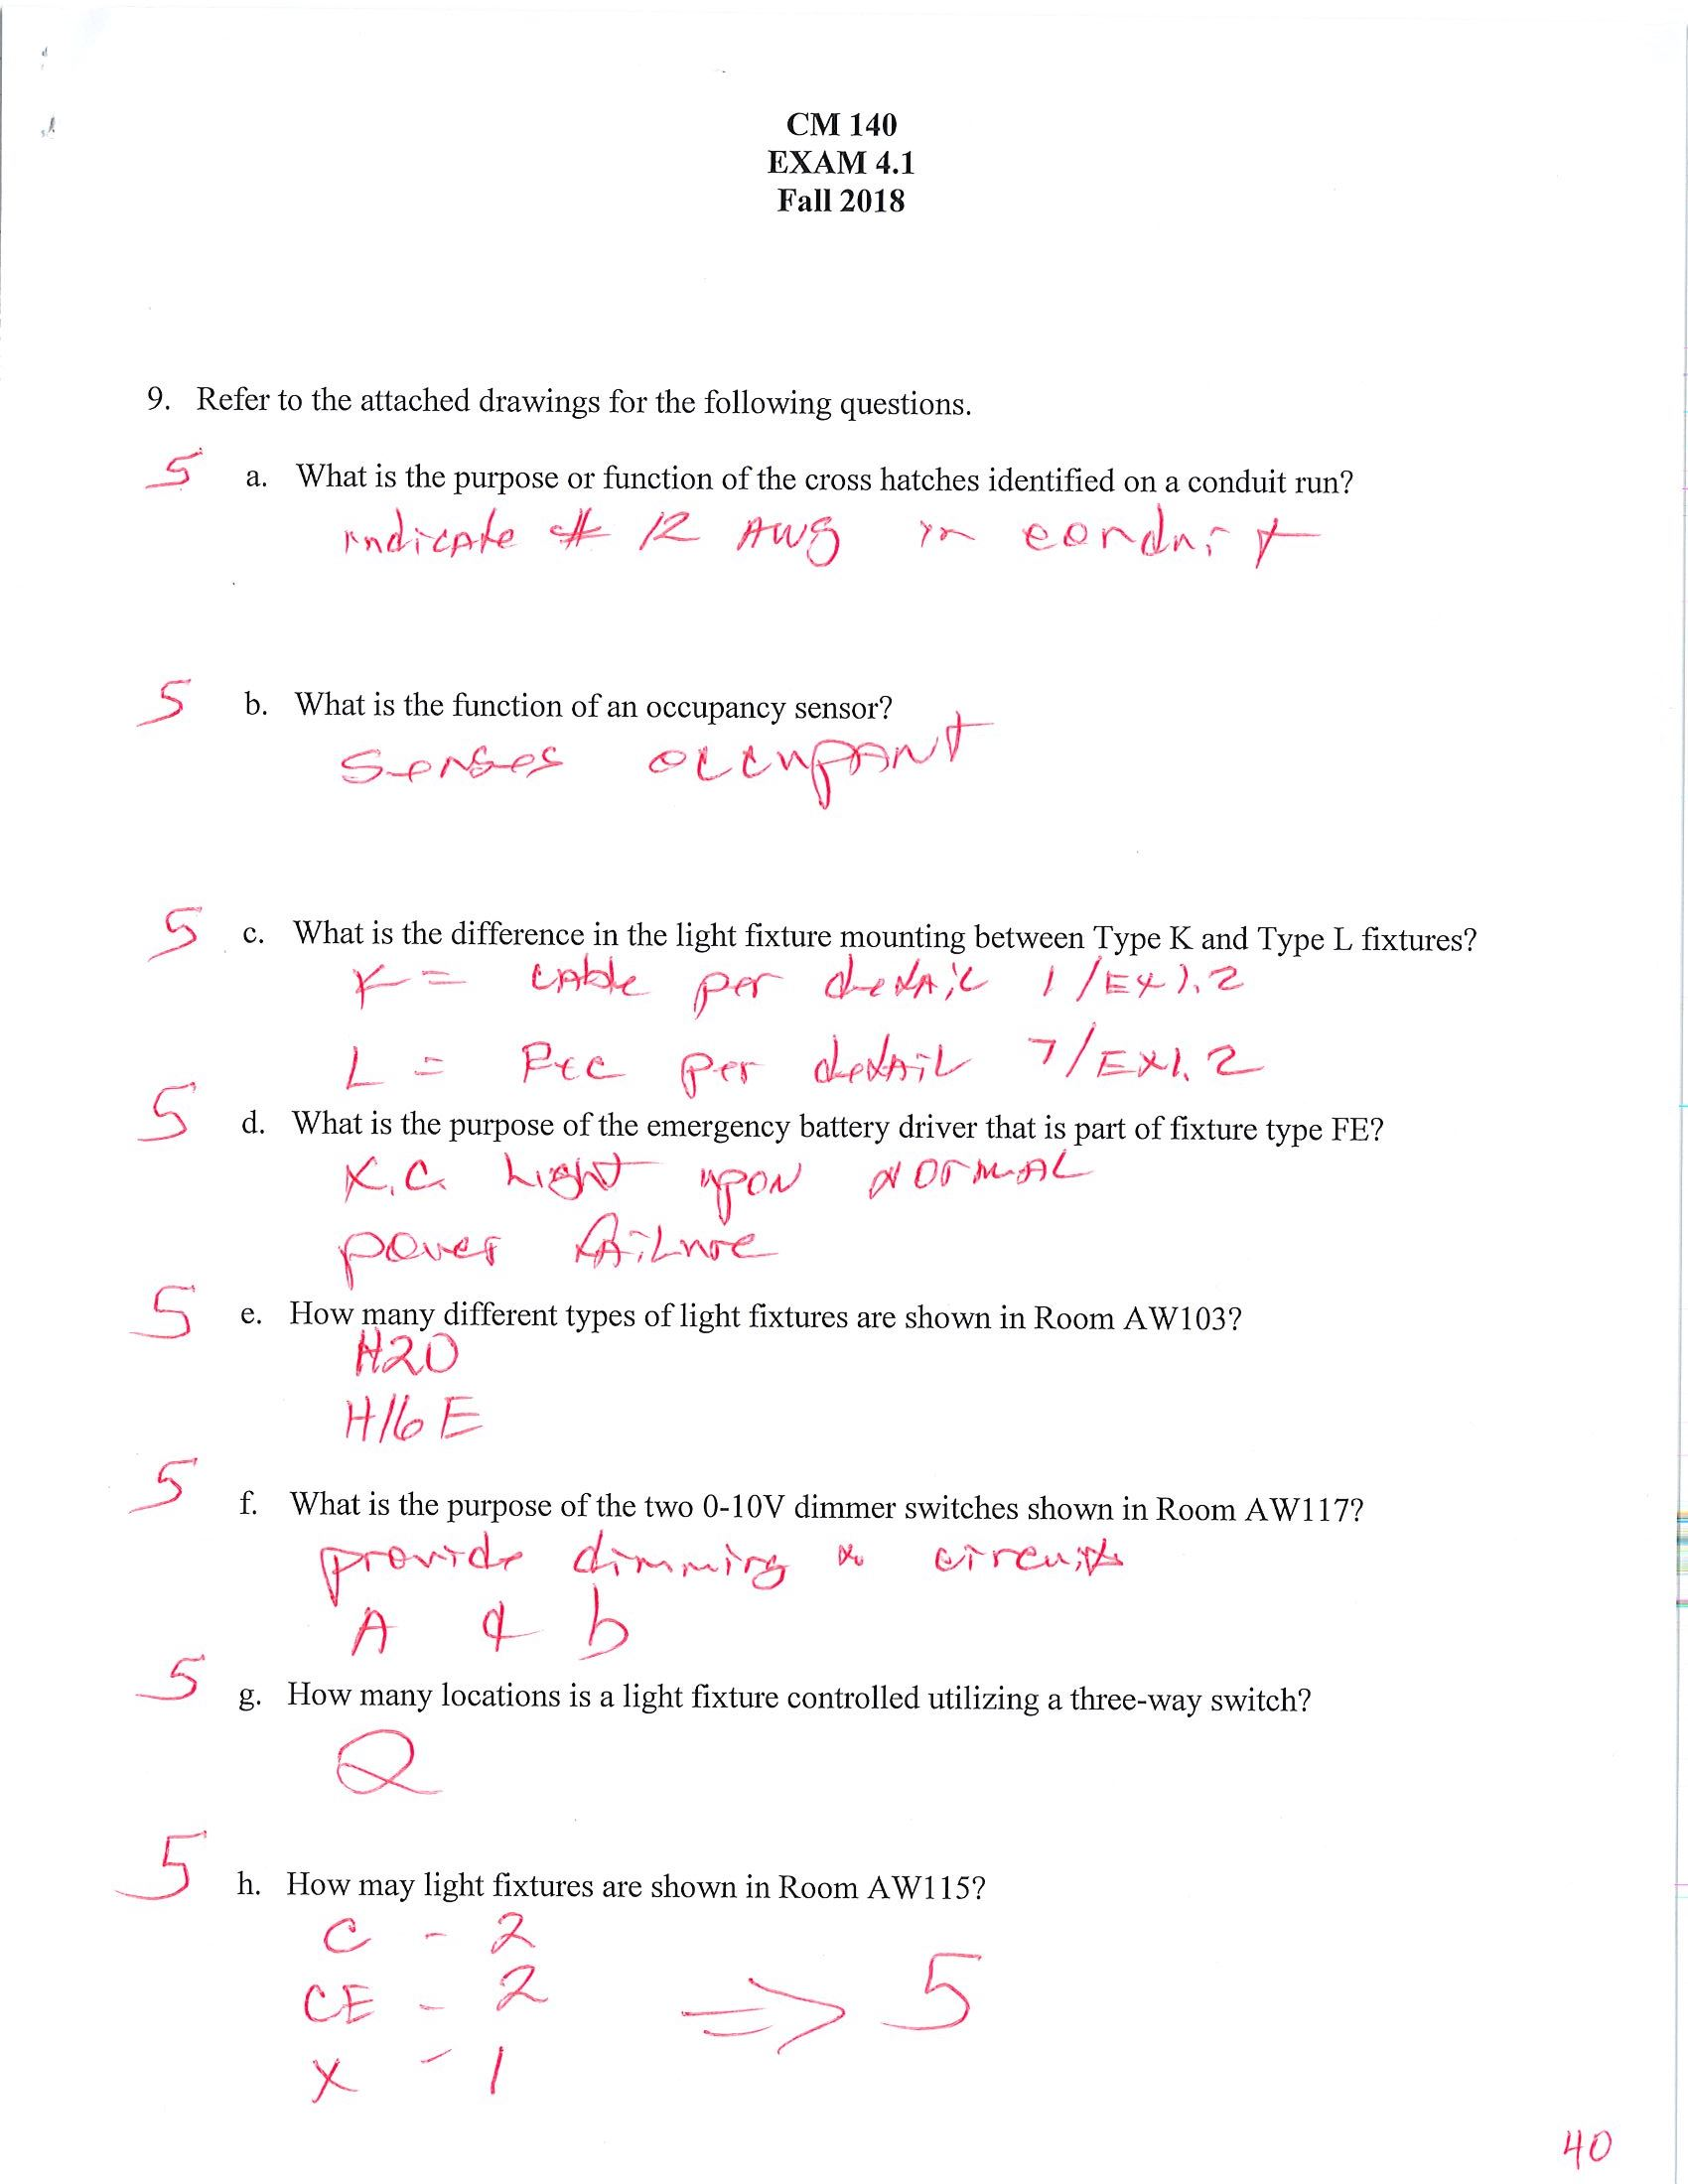 CM 140
EXAM 4.1
Fall 2018
9. Refer to the attached drawings for the following questions.
5 a. What is the purpose or function of the cross hatches identified on a conduit run?
indicate # 12 AWG in conduit
5 b. What is the function of an occupancy sensor?
senses occupant
5 c. What is the difference in the light fixture mounting between Type K and Type L fixtures?
K = cable per detail 1/EX1.2
L = per detail 7/EX1.2
5 d. What is the purpose of the emergency battery driver that is part of fixture type FE?
light upon NORMAL
power failure
5 e. How many different types of light fixtures are shown in Room AW103?
H20
H16E
5 f. What is the purpose of the two 0-10V dimmer switches shown in Room AW117?
provide dimming to circuits
A & b
5 g. How many locations is a light fixture controlled utilizing a three-way switch?
2
5 h. How may light fixtures are shown in Room AW115?
C - 2
CE - 2 => 5
X - 1
40